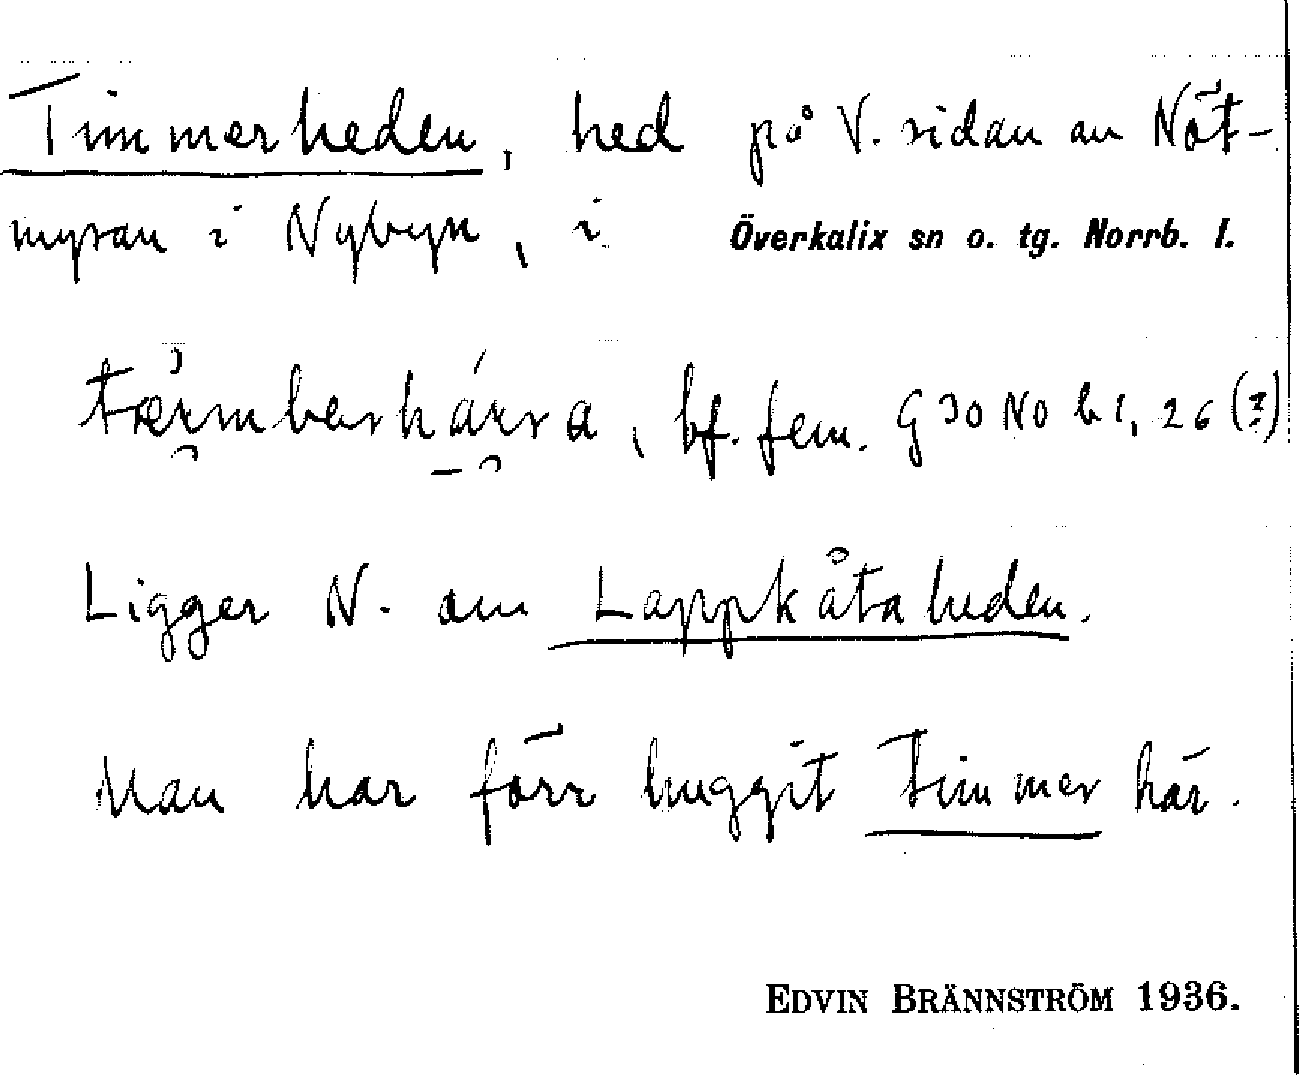 Timmerheden, hed på V. sidan av Nöt-
myran i Nybyn, i Överkalix sn o. tg. Norrb. l.
bf. fem. G 30 NO b 1, 26 (3)
Ligger N. om Lappkåtaheden.
Man har förr huggit timmer här.
EDVIN BRÄNNSTRÖM 1936.